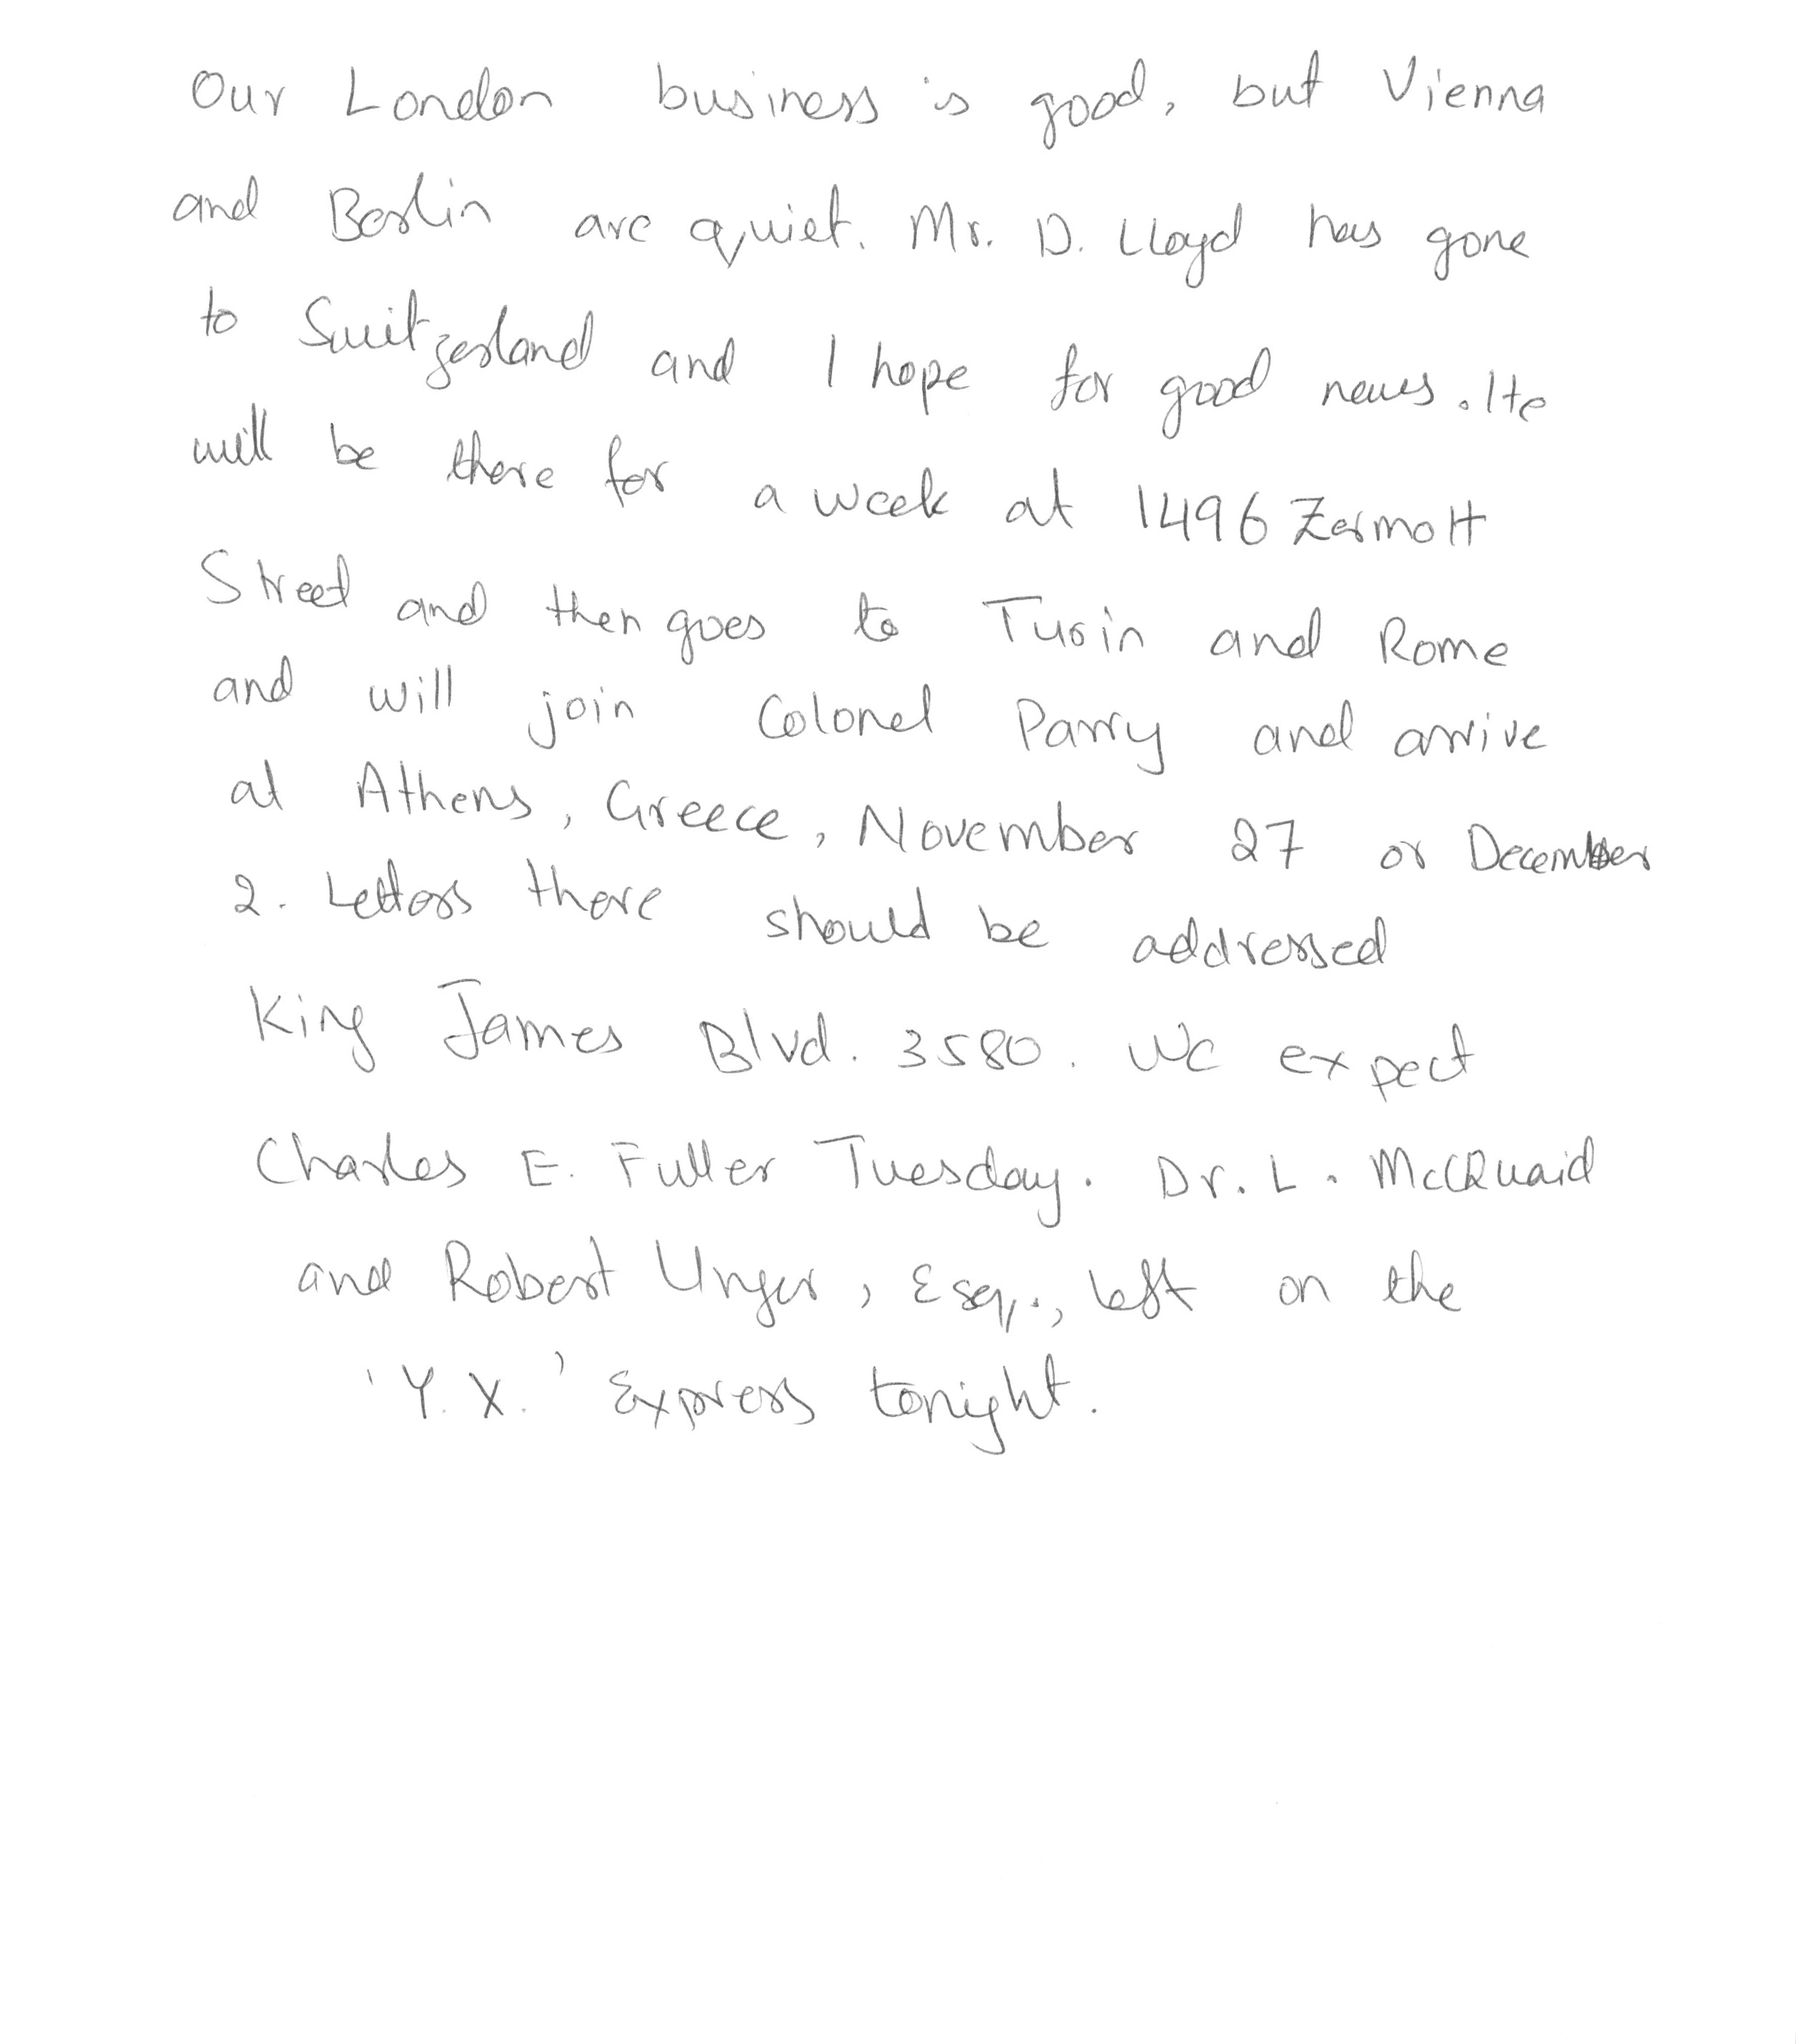 Our London business is good, but Vienna
and Berlin are quiet. Mr. D. Lloyd has gone
to Switzerland and I hope for good news. He
will be there for a week at 1496 Zermott
Street and then goes to Turin and Rome
and will join Colonel Parry and arrive
at Athens, Greece, November 27 or December
2. Letters there should be addressed
King James Blvd. 3580. We expect
Charles E. Fuller Tuesday. Dr. L. McQuaid
and Robert Unger, Esq., left on the
'Y.X.' Express tonight.